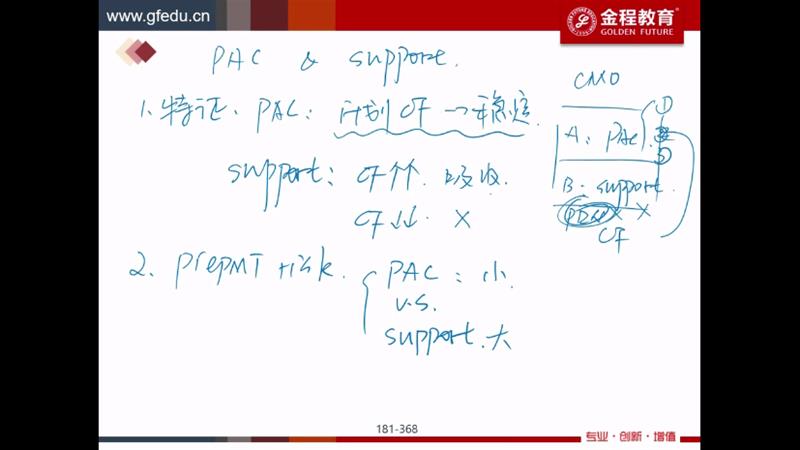 www.gfedu.cn
金程教育
GOLDEN FUTURE
PAC & support.
1.特证. PAC: 计划CF → 稳定.
support: CF↑↑. 吸收.
CF↓↓. X
2. prepMT risk.
PAC: 小.
v.s.
support. 大
CMO
①
A: PAC
②
B. support.
X X
CF
181-368
专业·创新·增值